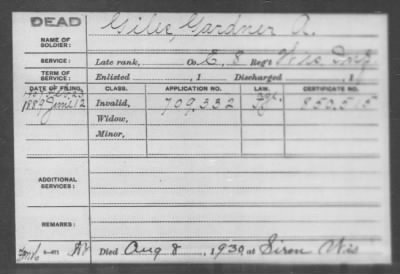 DEAD
NAME OF SOLDIER: Giles, Gardner A.
SERVICE: Late rank, Co. E, 8 Reg't Wis Inf
TERM OF SERVICE: Enlisted , 1 Discharged , 1
DATE OF FILING. CLASS. APPLICATION NO. LAW. CERTIFICATE NO.
1889 June 12 Invalid, 709,332 850,515
Widow,
Minor,
ADDITIONAL SERVICES:
REMARKS:
Died Aug 8, 1930, at Wis